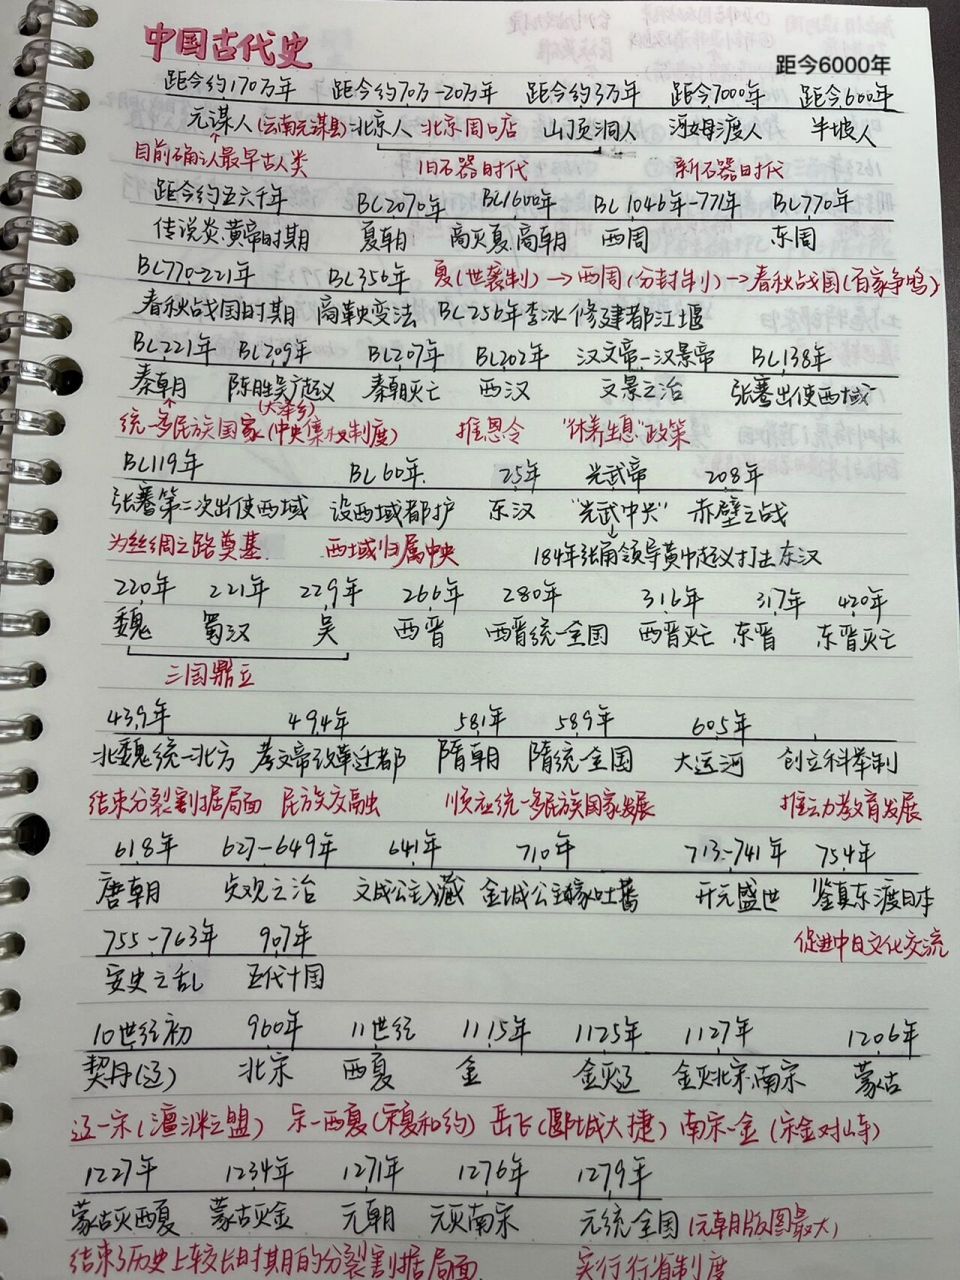 中国古代史
距今6000年
距今约170万年 距今约70万-20万年 距今约3万年 距今7000年 距今600年
元谋人(云南元谋县) 北京人 北京周口店 山顶洞人 河姆渡人 半坡人
目前确认最早古人类 旧石器时代 新石器时代
距今约五六千年 BC2070年 BC1600年 BC1046年-771年 BC770年
传说炎、黄帝时期 夏朝 商灭夏,商朝 西周 东周
BC770-221年 BC356年 夏(世袭制)→西周(分封制)→春秋战国(百家争鸣)
春秋战国时期 商鞅变法 BC256年李冰修建都江堰
BC221年 BC209年 BC207年 BC202年 汉文帝-汉景帝 BC138年
秦朝 陈胜吴广起义 秦朝灭亡 西汉 文景之治 张骞出使西域
(大泽乡)
统一多民族国家(中央集权制度) 推恩令 "休养生息"政策
BC119年 BC60年 25年 光武帝 208年
张骞第二次出使西域 设西域都护 东汉 "光武中兴" 赤壁之战
为丝绸之路奠基 西域归属中央 184年张角领导黄巾起义打击东汉
220年 221年 229年 266年 280年 316年 317年 420年
魏 蜀汉 吴 西晋 西晋统一全国 西晋灭亡 东晋 东晋灭亡
三国鼎立
439年 494年 581年 589年 605年
北魏统一北方 孝文帝改革迁都 隋朝 隋统一全国 大运河 创立科举制
结束分裂割据局面 民族交融 顺应统一多民族国家发展 推动教育发展
618年 627-649年 641年 710年 713-741年 754年
唐朝 贞观之治 文成公主入藏 金城公主嫁吐蕃 开元盛世 鉴真东渡日本
755-763年 907年 促进中日文化交流
安史之乱 五代十国
10世纪初 960年 11世纪 1115年 1125年 1127年 1206年
契丹(辽) 北宋 西夏 金 金灭辽 金灭北宋,南宋 蒙古
辽-宋(澶渊之盟) 宋-西夏(宋夏和约) 岳飞(郾城大捷) 南宋-金(宋金对峙)
1227年 1234年 1271年 1276年 1279年
蒙古灭西夏 蒙古灭金 元朝 元灭南宋 元统一全国(元朝版图最大)
结束了历史上较长时期的分裂割据局面 实行行省制度